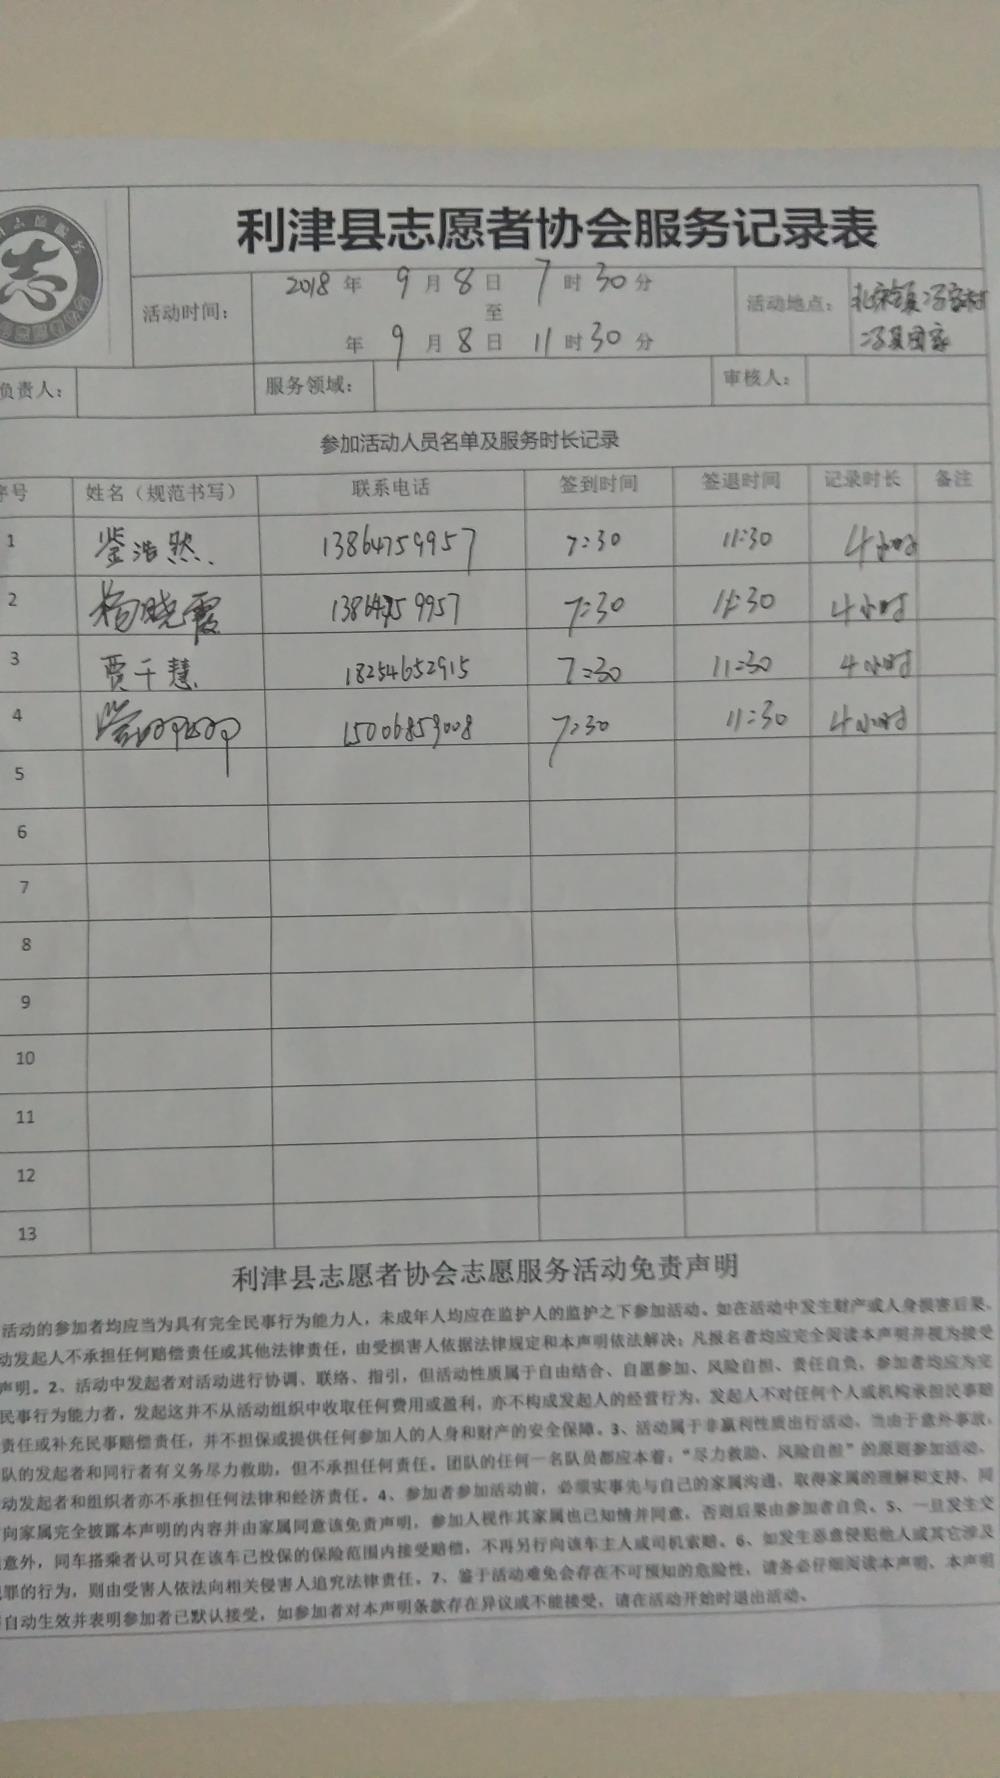 利津县志愿者协会服务记录表
志
活动时间：
2018年 9月8日 7时30分
至
年 9月8日 11时30分
活动地点：
负责人：
服务领域：
审核人：
参加活动人员名单及服务时长记录
序号 姓名（规范书写） 联系电话 签到时间 签退时间 记录时长 备注
1 浩然 13864759957 7:30 11:30 4小时
2 杨晓霞 13864759957 7:30 11:30 4小时
3 贾千慧 18254652915 7:30 11:30 4小时
4 15006859008 7:30 11:30 4小时
5
6
7
8
9
10
11
12
13
利津县志愿者协会志愿服务活动免责声明
活动的参加者均应当为具有完全民事行为能力人，未成年人均应在监护人的监护之下参加活动。如在活动中发生财产或人身损害后果，
动发起人不承担任何赔偿责任或其他法律责任，由受损害人依据法律规定和本声明依法解决；凡报名者均应完全阅读本声明并视为接受
声明。2、活动中发起者对活动进行协调、联络、指引，但活动性质属于自由结合、自愿参加、风险自担、责任自负，参加者均应为完
民事行为能力者，发起这并不从活动组织中收取任何费用或盈利，亦不构成发起人的经营行为，发起人不对任何个人或机构承担民事赔
责任或补充民事赔偿责任，并不担保或提供任何参加人的人身和财产的安全保障。3、活动属于非赢利性质出行活动、当由于意外事故，
队的发起者和同行者有义务尽力救助，但不承担任何责任。团队的任何一名队员都应本着，“尽力救助、风险自担”的原则参加活动。
动发起者和组织者亦不承担任何法律和经济责任。4、参加者参加活动前，必须实事先与自己的家属沟通，取得家属的理解和支持、同
向家属完全披露本声明的内容并由家属同意该免责声明，参加人视作其家属也已知情并同意，否则后果由参加者自负。5、一旦发生交
意外，同车搭乘者认可只在该车已投保的保险范围内接受赔偿，不再另行向该车主人或司机索赔。6、如发生恶意侵犯他人或其它涉及
犯罪的行为，则由受害人依法向相关侵害人追究法律责任。7、鉴于活动难免会存在不可预知的危险性，请务必仔细阅读本声明，本声明
自动生效并表明参加者已默认接受，如参加者对本声明条款存在异议或不能接受，请在活动开始时退出活动。